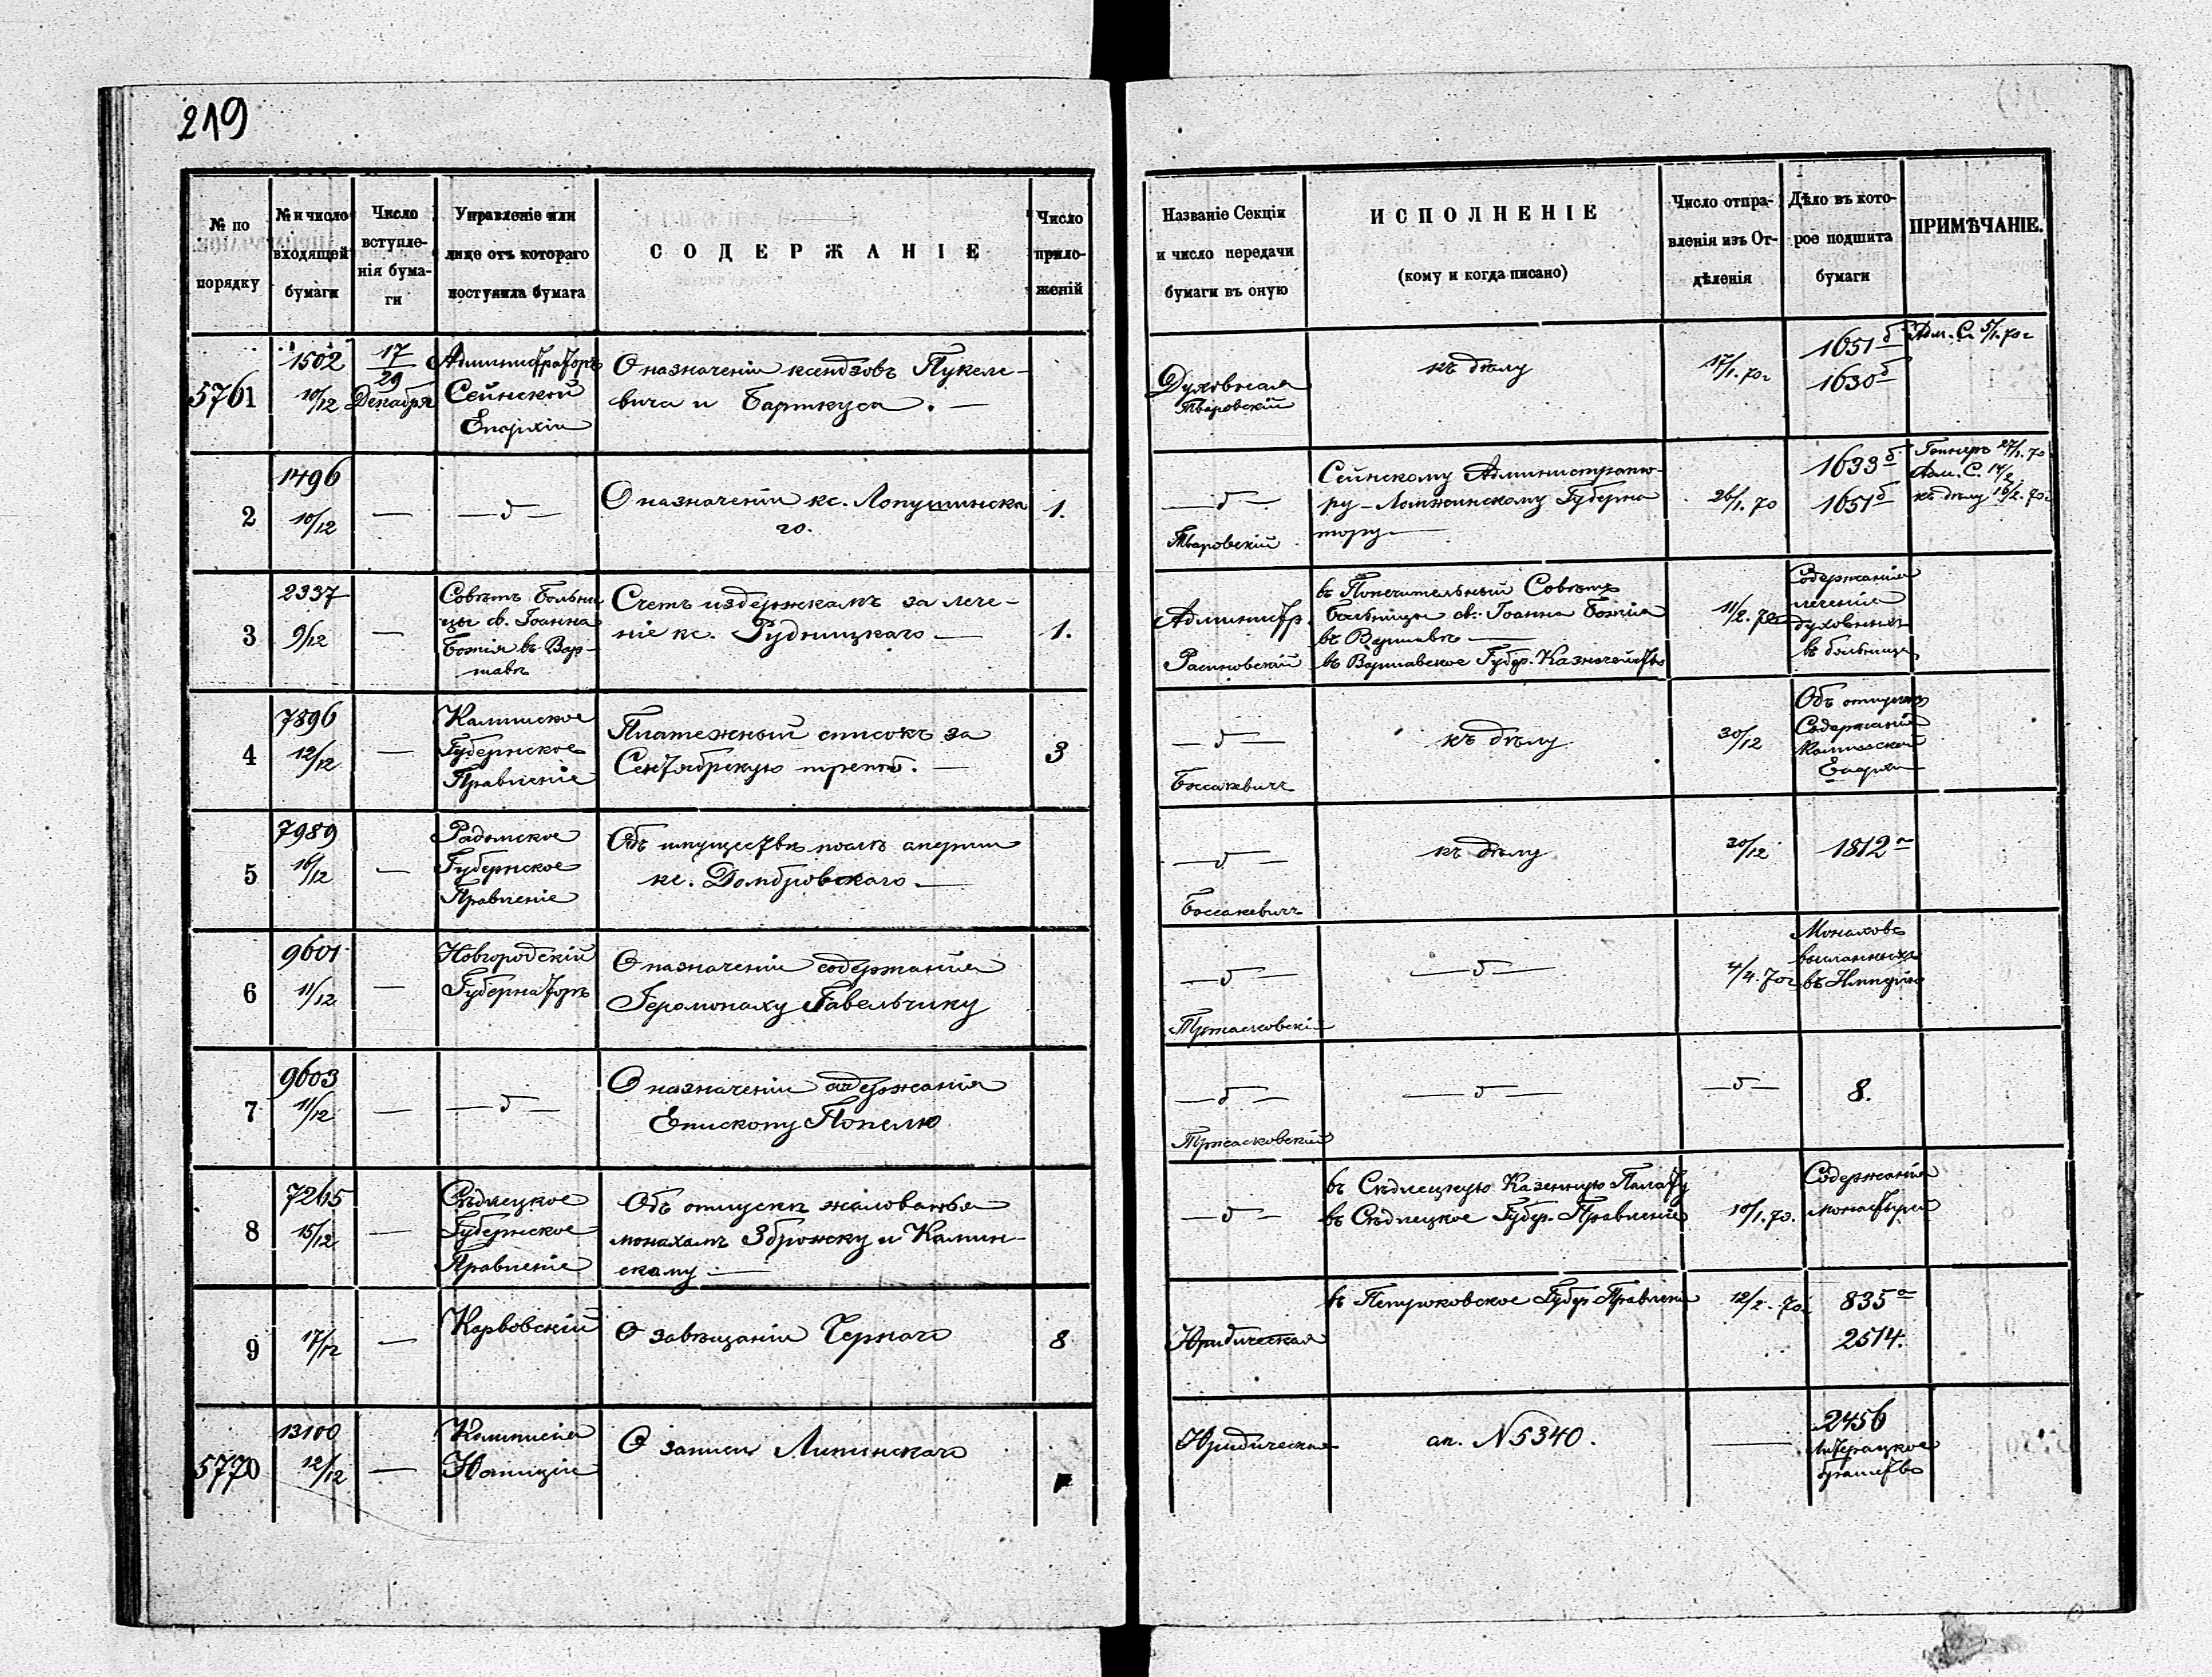 219
№ по порядку
№ и число входящей бумаги
Число вступле-
нія бума-
ги
Управленіе или
лице отъ котораго
поступила бумага
СОДЕРЖАНІЕ
Число
прило-
женій
Названіе Секціи
и число передачи
бумаги въ оную
ИСПОЛНЕНІЕ
(кому и когда писано)
Число отпра-
вленія изъ От-
дѣленія
Дѣло въ кото-
рое подшита
бумаги
ПРИМѢЧАНІЕ.
5761
1502
10/12
17/29
Декабря
Администраторъ
Сейнской
Епархіи
О назначеніи ксендзовъ Пукеле-
вича и Барткуса. —
Духовная
Тваровскій
къ дѣлу
17/1. 70 г
1651 б
1630 б
Адм. С. 5/1. 70 г
2
1496
10/12
—
— „ —
О назначеніи кс. Лопушинска
го.
1.
— „ —
Тваровскій
Сейнскому Администрато-
ру – Ломжинскому Губерна
тору —
26/1. 70
1633 б
1651 б
27/1. 70
Адм. С. 14/2
къ дѣлу 16/2. 70 г
3
2337
9/12
—
Совѣтъ Больни
цы св. Іоанна
Божія въ Вар-
шавѣ
Счетъ издержкамъ за лече-
ніе кс. Рудницкаго —
1.
Администр.
въ Попечительный Совѣтъ
Больницы св. Іоанна Божія
въ Варшавѣ —
въ Варшавское Губер. Казначейство
11/2. 70
Содержанія
леченія
духовныхъ
въ больницѣ
4
7896
12/12
—
Калишское
Губернское
Правленіе
Платежный списокъ за
Сентябрскую треть. —
3
— „ —
Боссакевичъ
къ дѣлу
30/12
Объ отпускѣ
Содержанія
Калишской
Епархіи
5
7989
16/12
—
Радомское
Губернское
Правленіе
Объ имуществѣ послѣ смерти
кс. Домбровскаго —
— „ —
Боссакевичъ
къ дѣлу
30/12
1812 а
6
9601
11/12
—
Новгородскій
Губернаторъ
О назначеніи содержанія
Іеромонаху Гавельчику
— „ —
Тржасковскій
— „ —
4/4. 70 г
Монаховъ
высланныхъ
въ Имперію
7
9603
11/12
—
— „ —
О назначеніи содержанія
Епископу Попелю
— „ —
Тржасковскій
— „ —
— „ —
8.
8
7265
15/12
—
Сѣдлецкое
Губернское
Правленіе
Объ отпускѣ жалованья
монахамъ Зброжеку и Камин-
скому —
— „ —
въ Сѣдлецкую Казенную Палату
въ Сѣдлецкое Губер. Правленіе
10/1. 70.
Содержанія
монастырей
9
17/12
—
Карвовскій
О завѣщаніи Чернаго
8
Юридическая
въ Петроковское Губер. Правленіе
12/2. 70.
835 а
2514.
5770
13100
12/12
—
Коммисія
Юстиціи
О записи Липинскаго
Юридическая
ап. N 5340.
—
2456
Литерацкое
братство